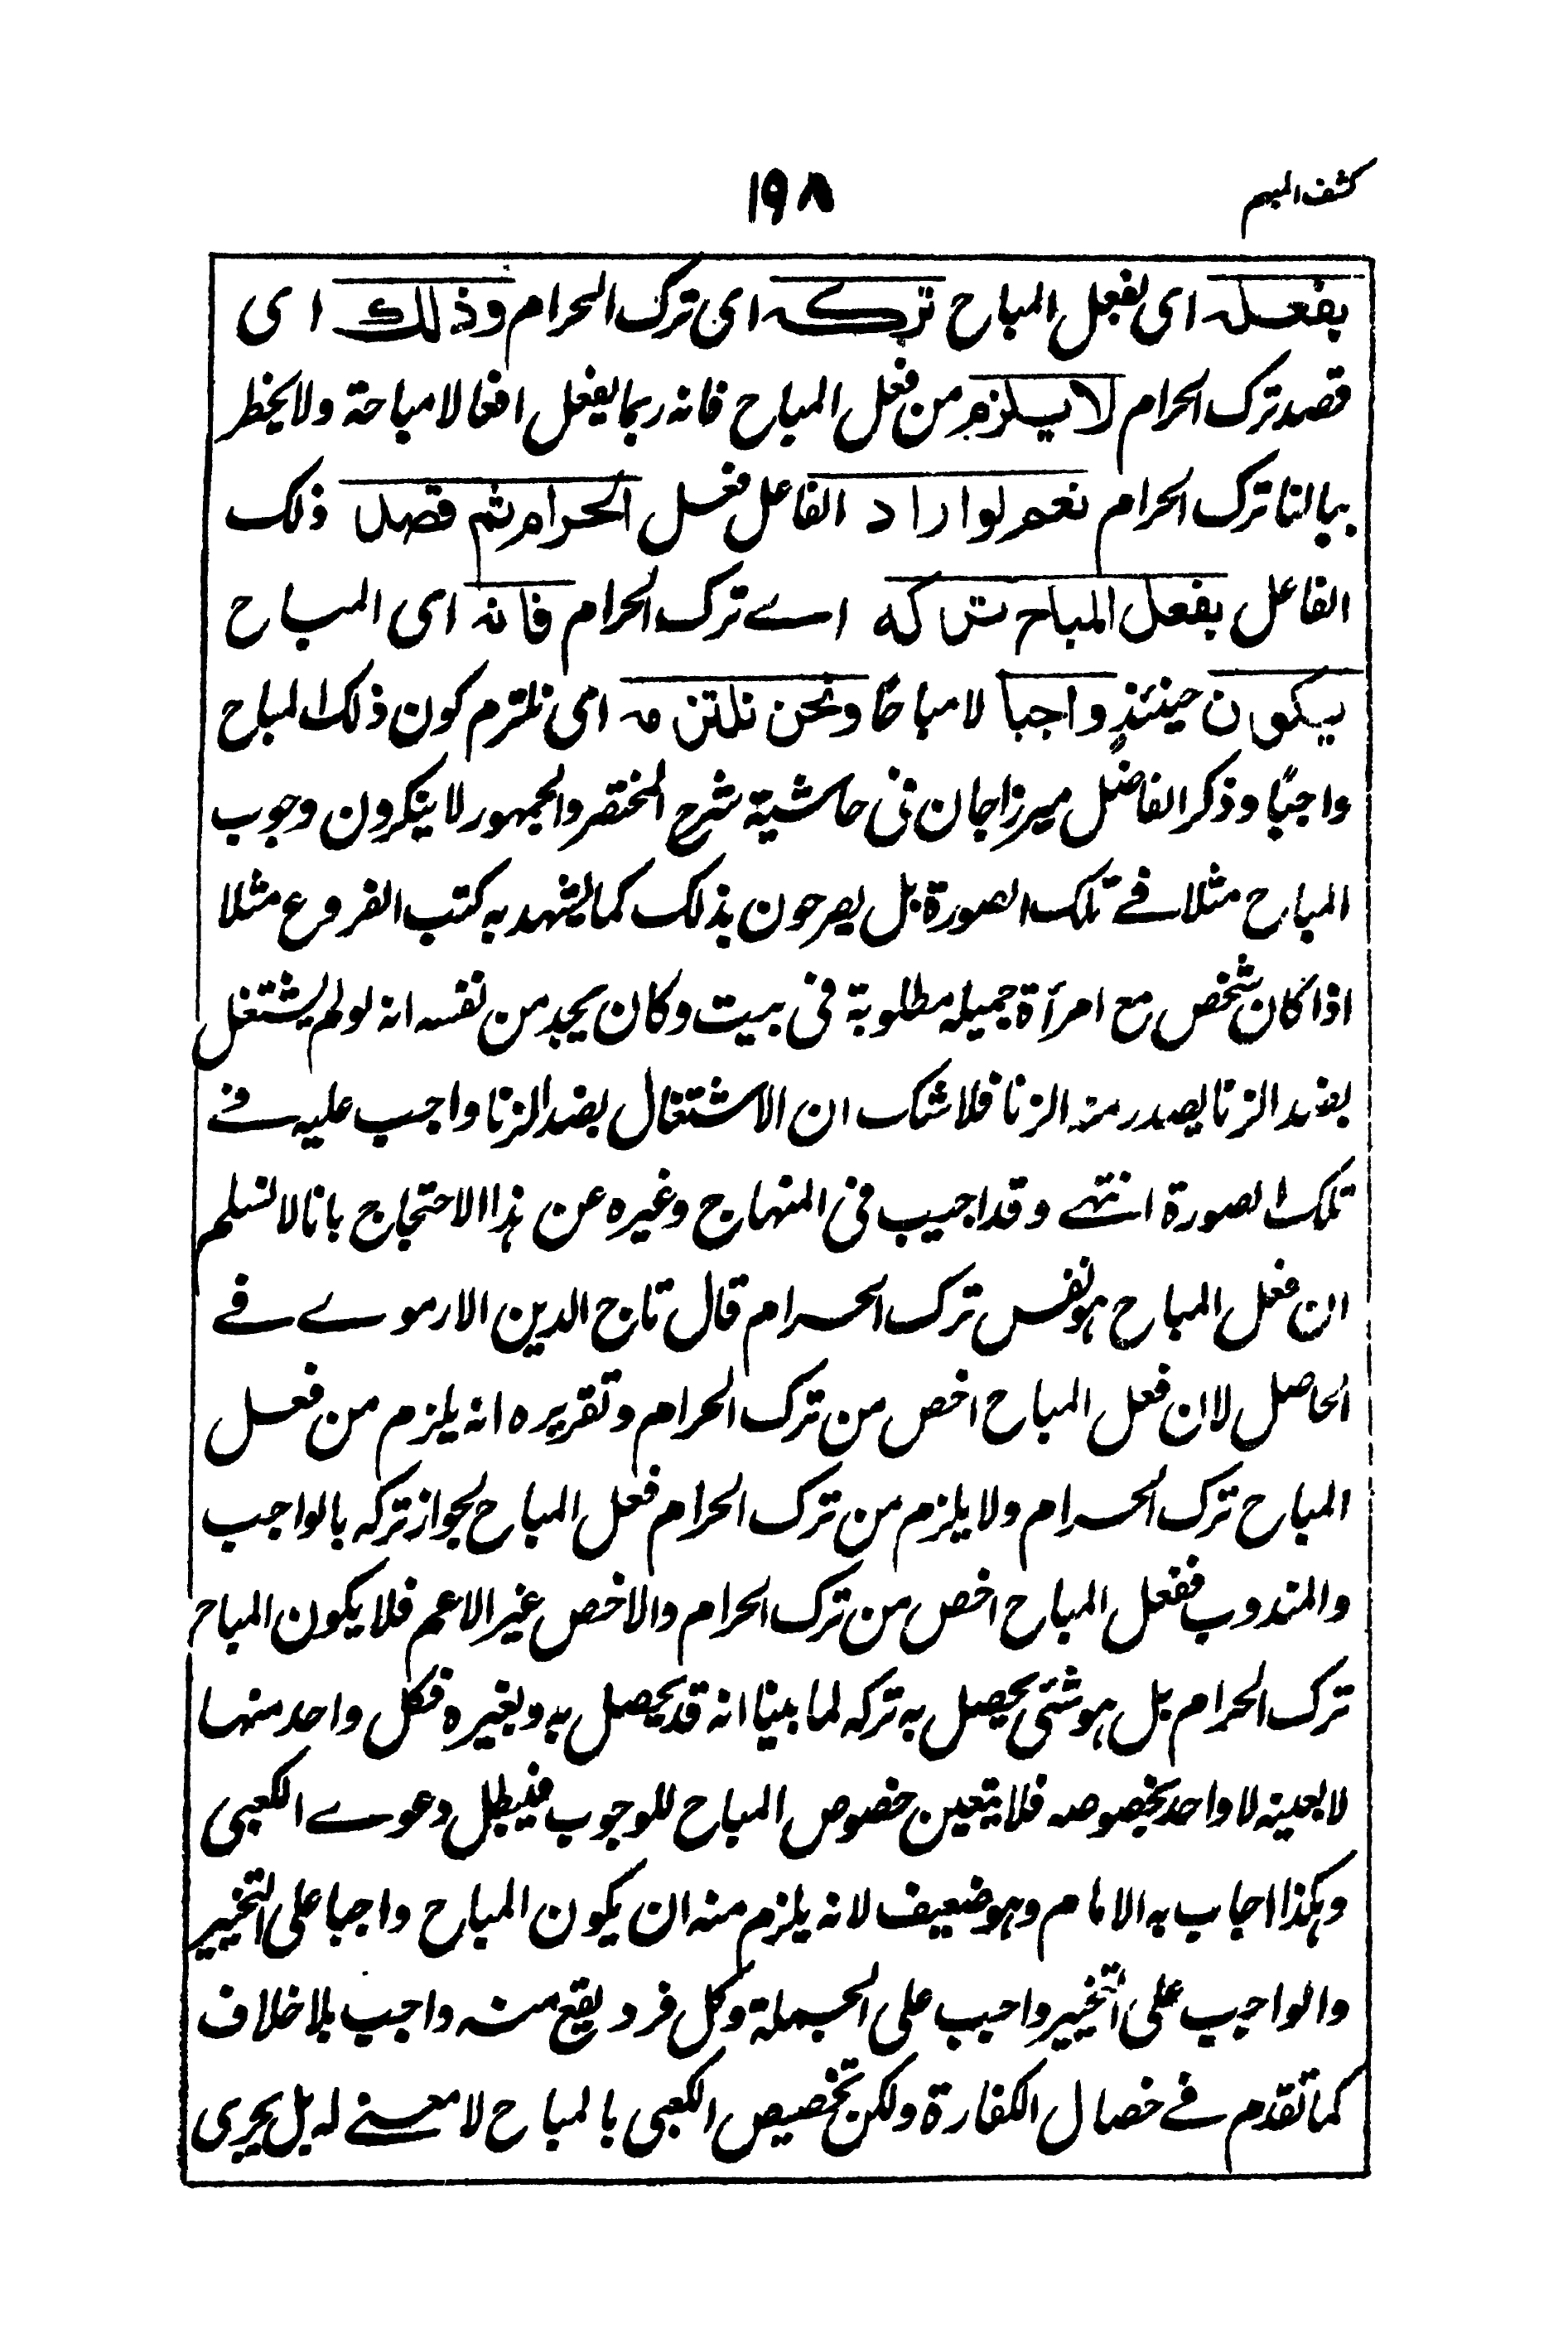 كشف المبهم
١٩٨
بفعله اى بفعل المباح تركه اى ترك الحرام وذلك اى
قصد ترك الحرام لا يلزم من فعل المباح فانه ربما يفعل افعالا مباحة ولا يخطر
ببالنا ترك الحرام نعم لو اراد الفاعل فعل الحرام ثم قصد ذلك
الفاعل بفعل المباح تركه اے ترك الحرام فانه اى المباح
يكون حينئذٍ واجبا لا مباحًا ونحن نلتزمه اى نلتزم كون ذلك المباح
واجبًا وذكر الفاضل ميرزاجان فى حاشية شرح المختصر والجمهور لا ينكرون وجوب
المباح مثلا فے تلك الصورة بل يصرحون بذلك كما يشهد به كتب الفروع مثلا
اذا كان شخص مع امرأة جميله مطلوبة فى بيت وكان يجد من نفسه انه لو لم يشتغل
بضد الزنا يصدر منه الزنا فلا شك ان الاشتغال بضد الزنا واجب عليه فے
تلك الصورة انتهے وقد اجيب فى المنهاج وغيره عن هذا الاحتجاج بانا لا نسلم
ان فعل المباح هو نفس ترك الحرام قال تاج الدين الارموے فے
الحاصل لان فعل المباح اخص من ترك الحرام وتقريره انه يلزم من فعل
المباح ترك الحرام ولا يلزم من ترك الحرام فعل المباح لجواز تركه بالواجب
والمندوب ففعل المباح اخص من ترك الحرام والاخص غير الاعم فلا يكون المباح
ترك الحرام بل هو شئى يحصل به تركه لما بينا انه قد يحصل به وبغيره فكل واحد منها
لا بعينه لا واحد بخصوصه فلا يتعين خصوص المباح للوجوب فيبطل دعوے الكعبى
وهكذا اجاب به الامام وهو ضعيف لانه يلزم منه ان يكون المباح واجبا على التخيير
والواجب على التخيير واجب على الجملة وكل فرد يقع منه واجب بلا خلاف
كما تقدم فے خصال الكفارة ولكن تخصيص الكعبى بالمباح لا معنے له بل يجرى